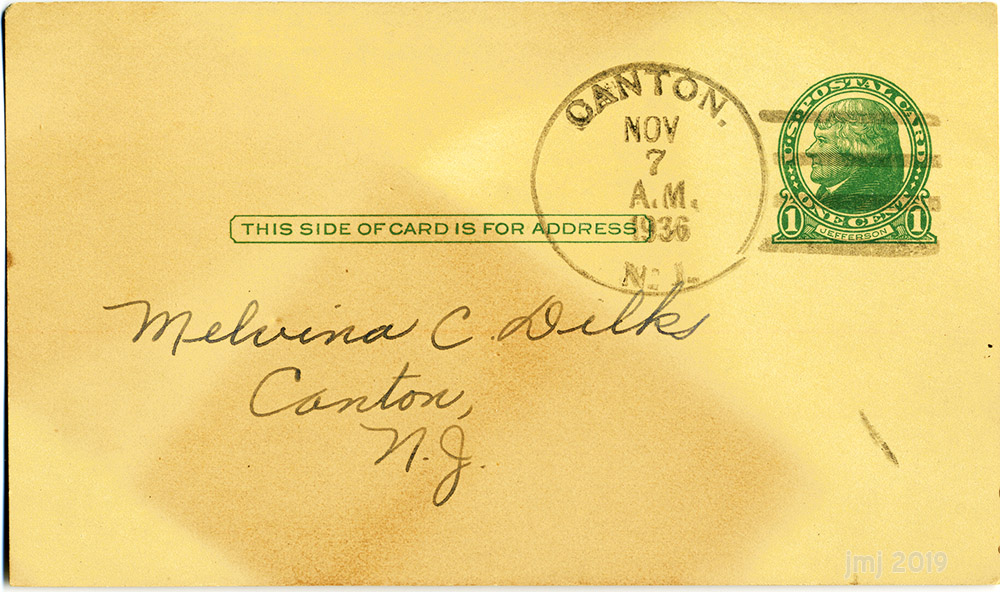 CANTON.
NOV
7
A.M.
1936
N. J.
U.S. POSTAL CARD
ONE CENT
1 JEFFERSON 1
THIS SIDE OF CARD IS FOR ADDRESS
Melvina C. Dilks
Canton,
N.J.
jmj 2019